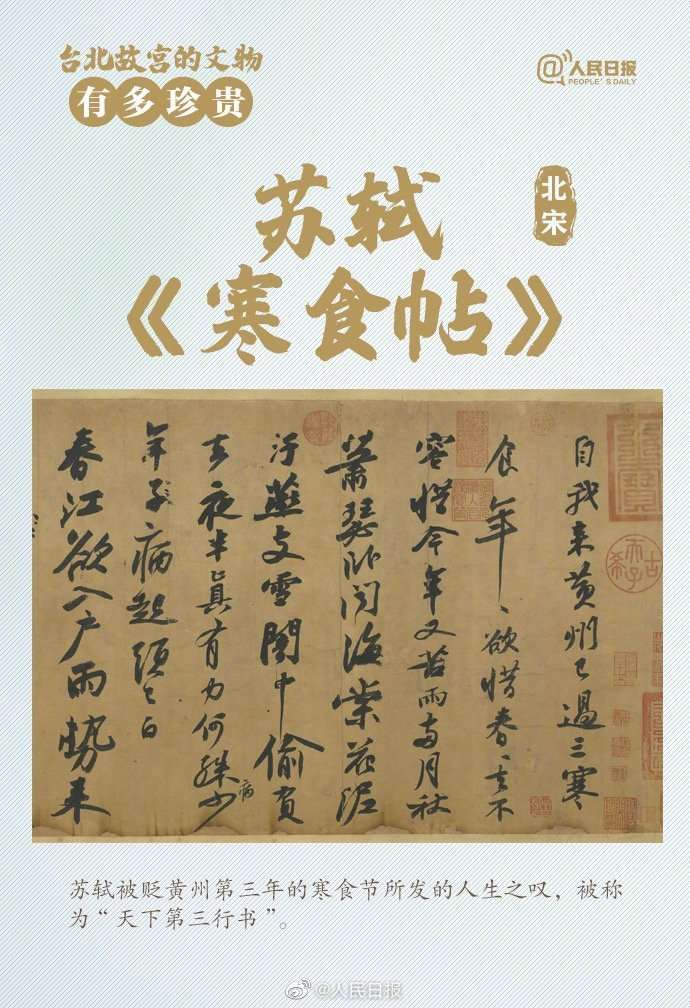 台北故宫的文物
有多珍贵
@人民日报
PEOPLE'S DAILY
苏轼
《寒食帖》
北宋
自我来黄州已過三寒
食年〻欲惜春〻去不
容惜今年又苦雨兩月秋
蕭瑟卧聞海棠花泥
汙燕支雪闇中偷負
去夜半真有力何殊少
病
年子病起頭已白
春江欲入户雨勢来
古希天子
苏轼被贬黄州第三年的寒食节所发的人生之叹，被称
为“天下第三行书”。
@人民日报